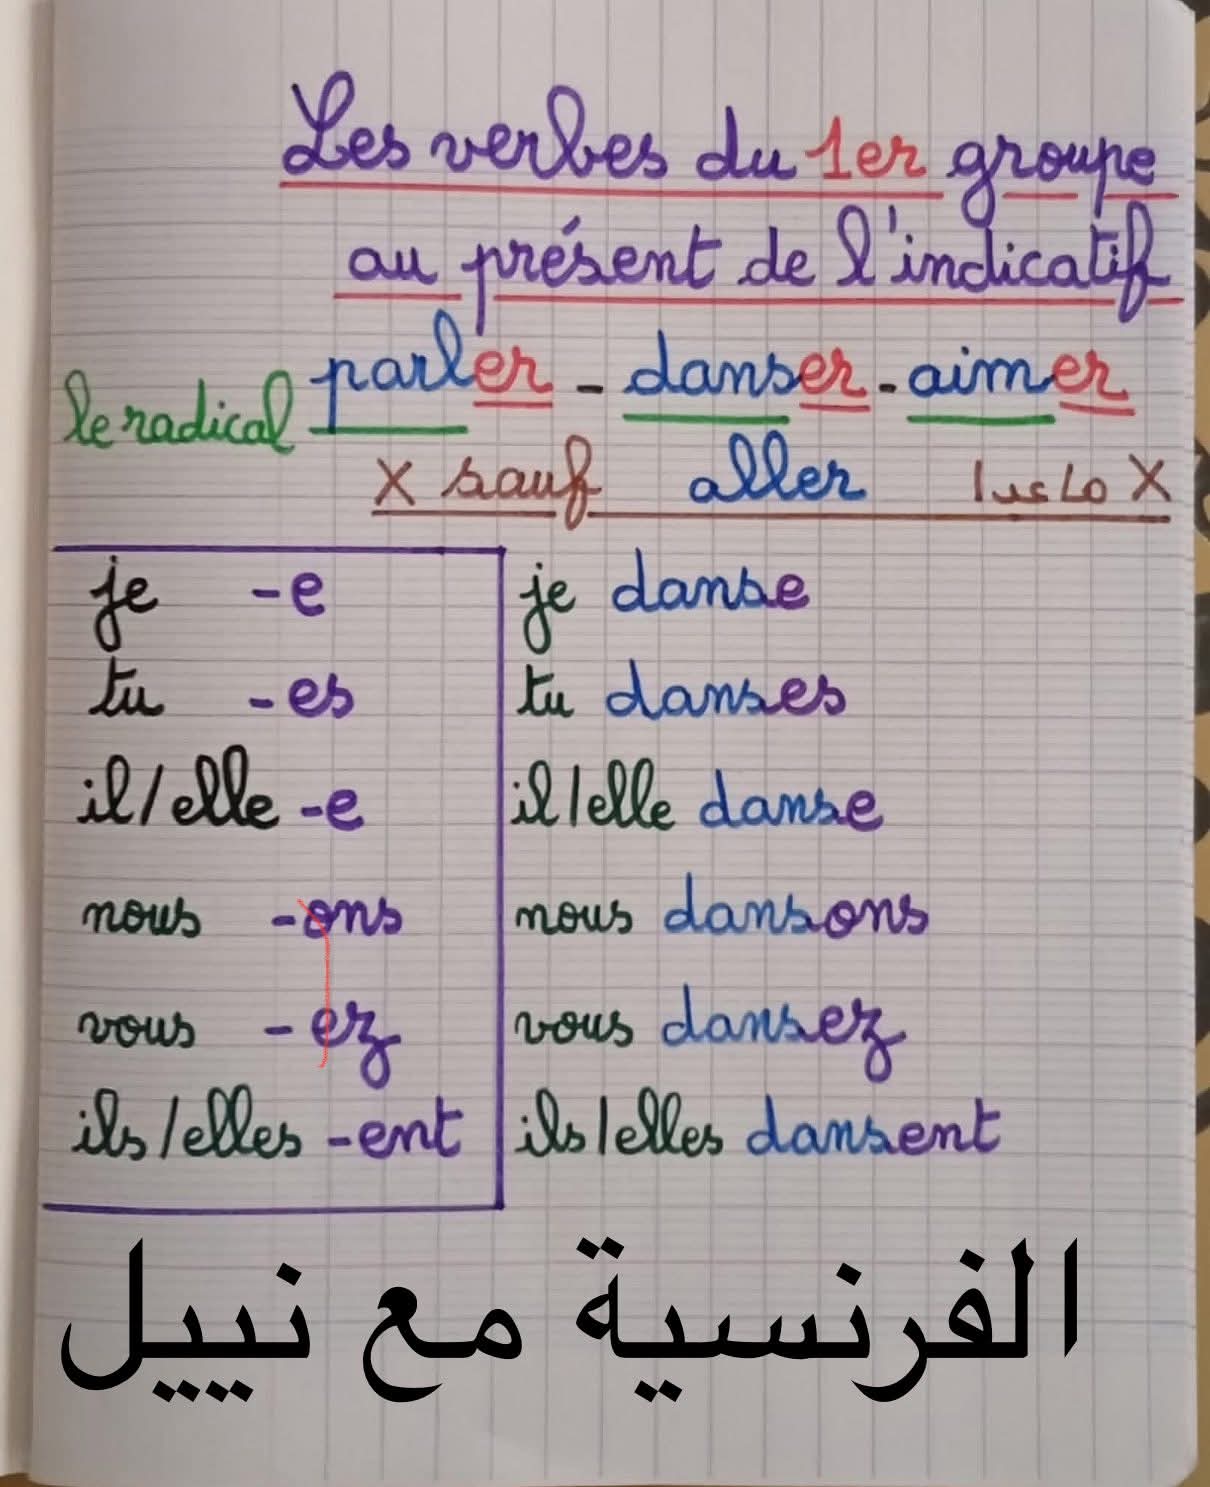 Les verbes du 1er groupe
au présent de l'indicatif
le radical parler - danser - aimer
X sauf aller ماعدا X
je -e je danse
tu -es tu danses
il/elle -e il/elle danse
nous -ons nous dansons
vous -ez vous dansez
ils/elles -ent ils/elles dansent
الفرنسية مع نييل